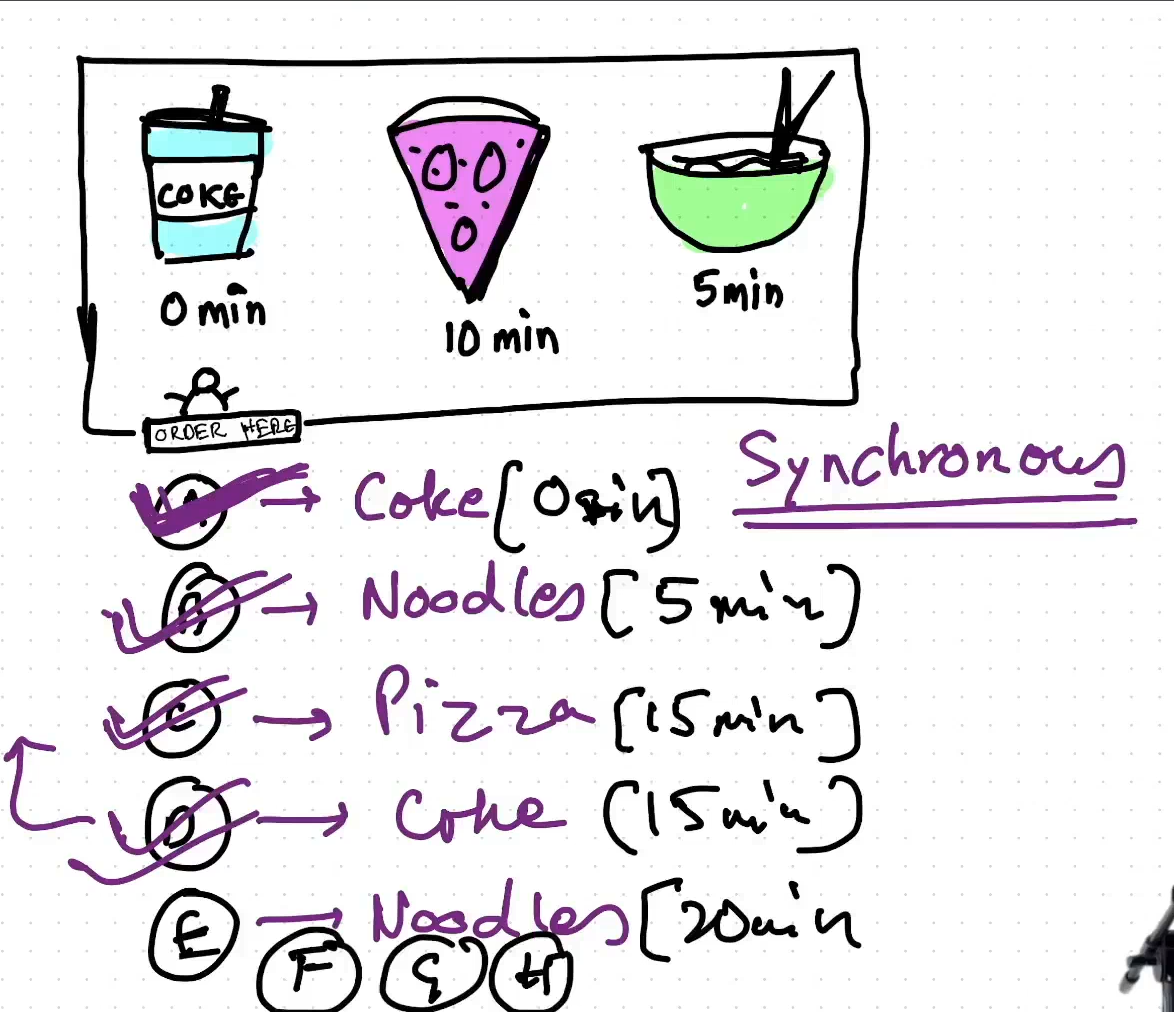 COKE
0 min
10 min
5min
ORDER HERE
Synchronous
A → Coke [0min]
B → Noodles [5 min]
C → Pizza [15min]
D → Coke (15min)
E → Noodles [20min
F G H